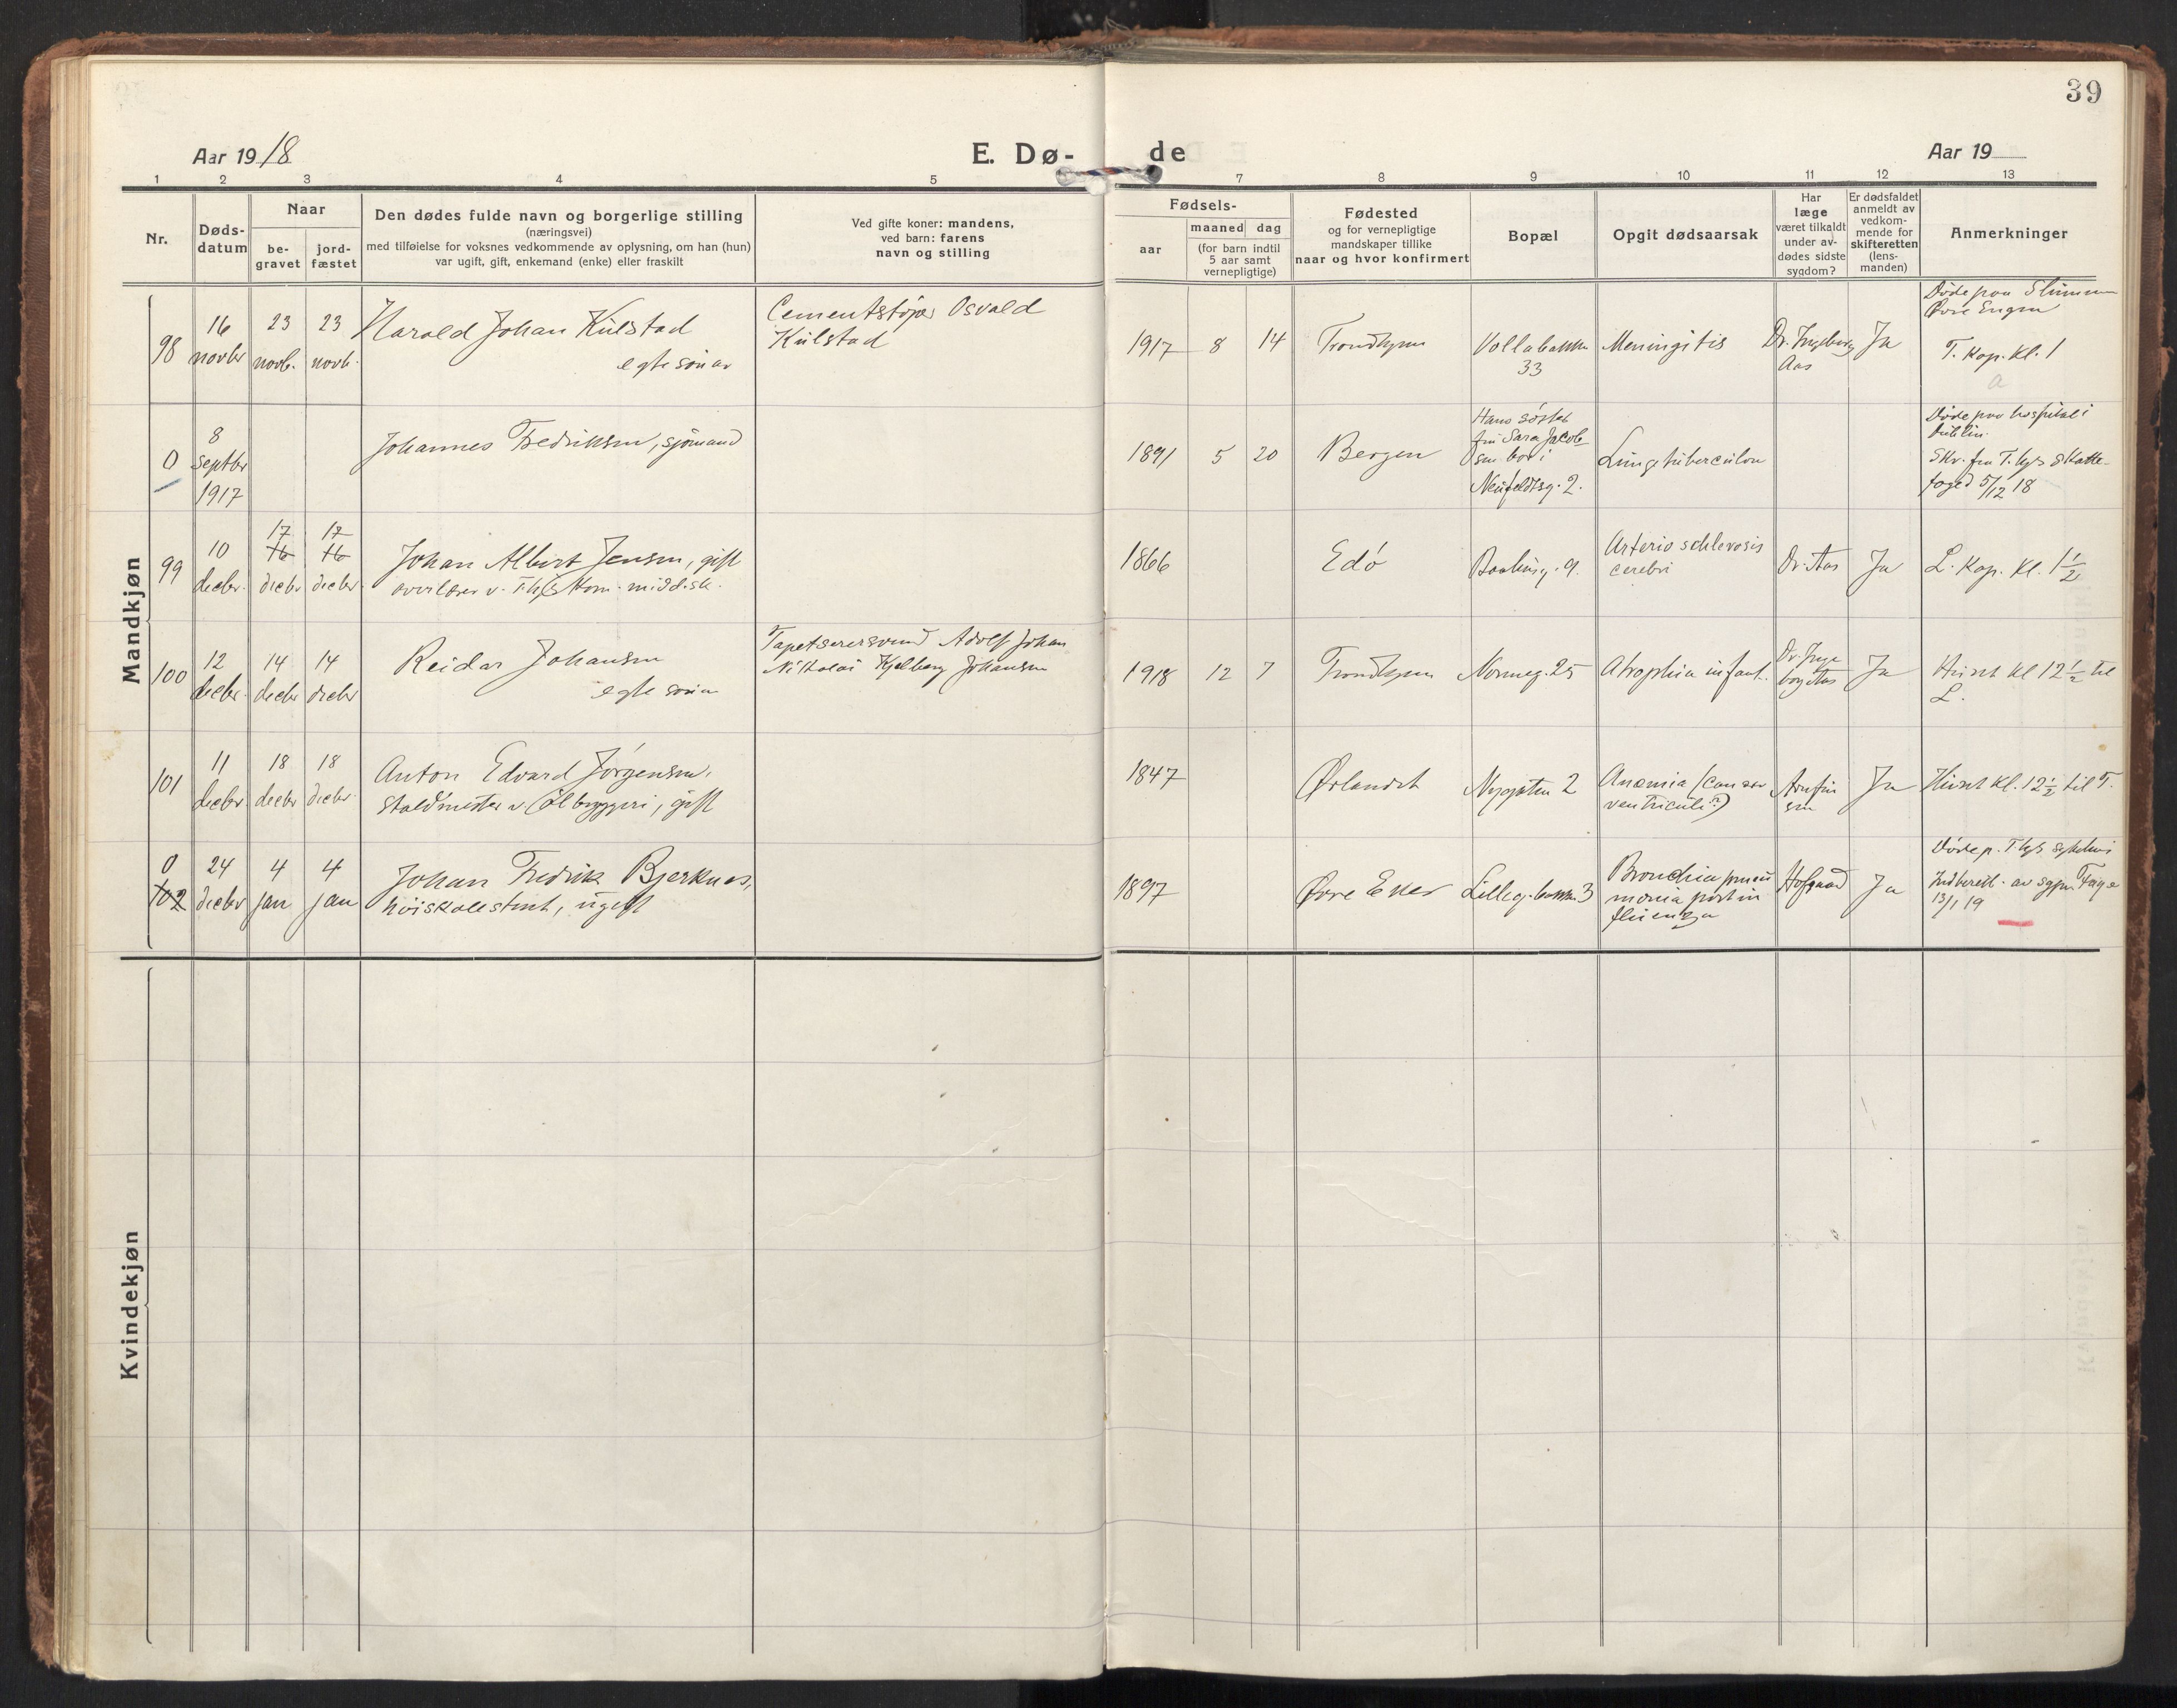 39
Aar 1918
E. Dø-
de
Aar 19
1 2 3 4 5
7 8 9 10 11 12 13
Nr.
Døds-
datum
Naar
be-
gravet
jord-
fæstet
Den dødes fulde navn og borgerlige stilling
(næringsvei)
med tilføielse for voksnes vedkommende av oplysning, om han (hun)
var ugift, gift, enkemand (enke) eller fraskilt
Ved gifte koner: mandens,
ved barn: farens
navn og stilling
Fødsels-
aar
maaned dag
(for barn indtil
5 aar samt
vernepligtige)
Fødested
og for vernepligtige
mandskaper tillike
naar og hvor konfirmert
Bopæl
Opgit dødsaarsak
Har
læge
været tilkaldt
under av-
dødes sidste
sygdom?
Er dødsfaldet
anmeldt av
vedkom-
mende for
skifteretten
(lens-
manden)
Anmerkninger
Mandkjøn
98
16
novbr
23
novb.
23
novb.
Harald Johan Kulstad
egte søn av
Cementstøper Osvald
Kulstad
1917 8 14
Trondhjem
Vollabakken
33
Meningitis
Dr. Ingeborg
Aas
Ja
Døde paa
Øvre Engen
T. Kap. Kl. 1
a
0
8
septbr
1917
Johannes Fredriksen, sjømand
1891 5 20
Bergen
Hans søster
fru Sara Jacob-
sen bor i
Neufeldtsg. 2.
Lungetuberculose
Døde paa hospital i
Dublin.
Skr. fra T.hjs skatte-
foged 5/12 18
99
10
decbr.
17
16
decbr
17
16
decbr.
Johan Albert Jensen, gift
overlærer v. T.hjs kom. middelsk.
1866
Edö
Baklig. 9.
Arterio schlerosis
cerebri
Dr. Aas
Ja
L. Kap. Kl. 1 1/2
100
12
decbr.
14
decbr
14
decbr
Reidar Johansen
egte søn av
Tapetserersvend Adolf Johan
Nikolai Kjelberg Johansen
1918 12 7
Trondhjem
Nonneg. 25
Atrophia infant.
Dr. Inge-
borg Aas
Ja
Huset kl 12 1/2 til
L.
101
11
decbr.
18
decbr
18
decbr.
Anton Edvard Jörgensen,
staldmester v. Ølbryggeri, gift
1847
Ørlandet
Nygaten 2
Anæmia (cancer
ventriculi?)
Arnfin
sen
Ja
Huset Kl. 12 1/2 til T.
0
102
24
decbr
4
jan
4
jan
Johan Fredrik Bjerknes,
höiskolestud., ugift
1897
Øvre Eker
Lilleg. bakken 3
Bronchia pneu
monia post in
fluenza
Hofgaard
Ja
Døde p. T.hjs sykehus
Indberett. av sgpr.
13/1 19
Kvindekjøn